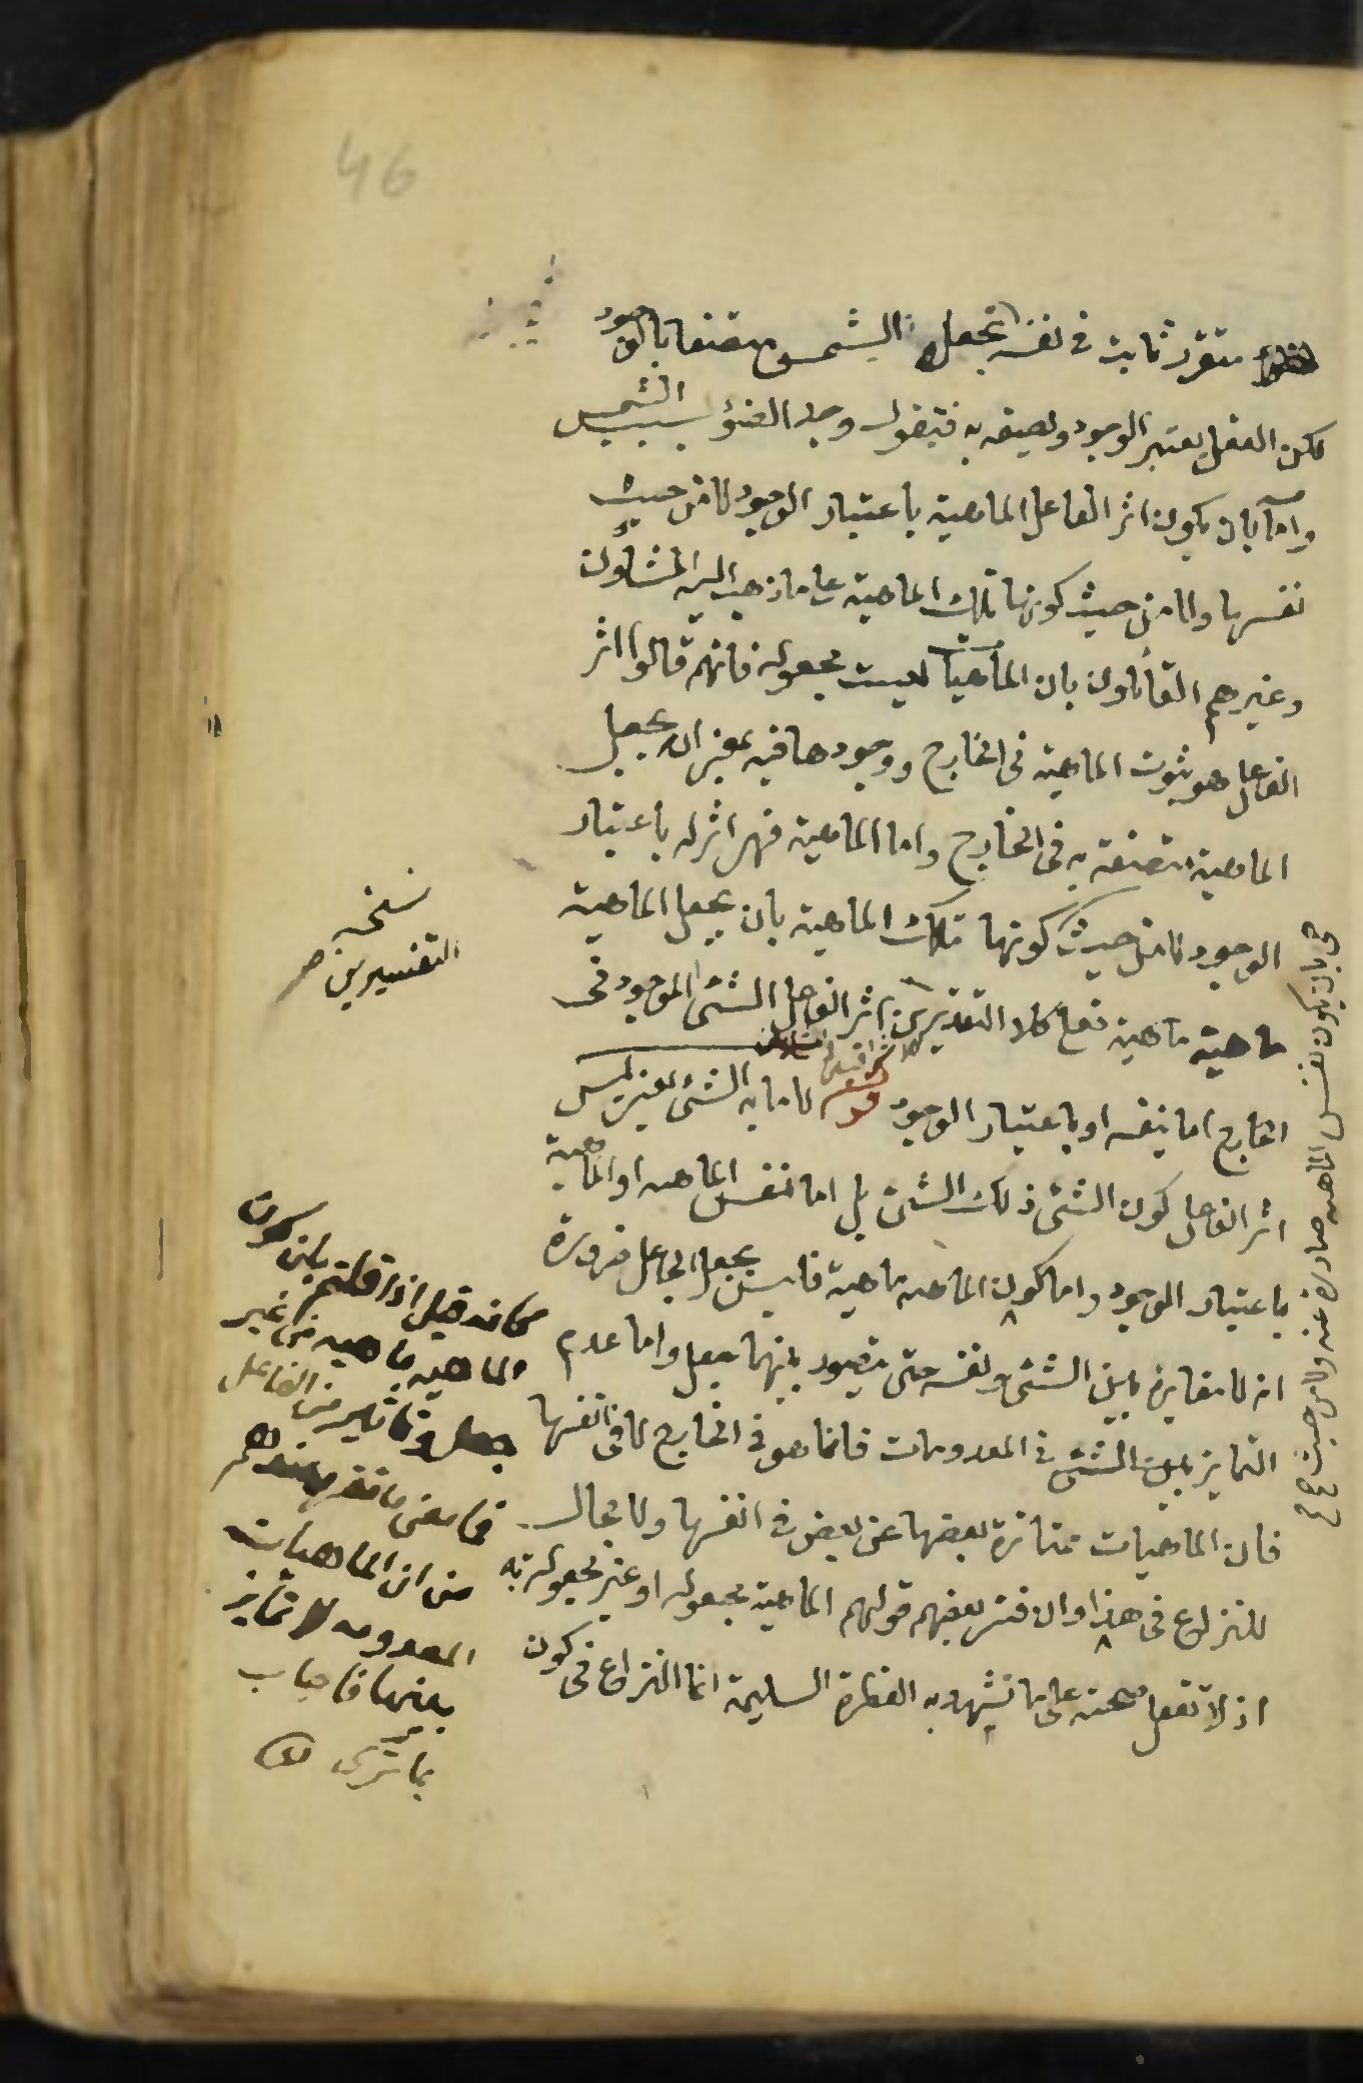 46
متقرر ثابت في نفسه تجعل الشمس متصفا بالوجود
لكن العقل يعتبر الوجود ويصفه به فيقول وجد الضوء بسبب الشمس
واما بان يكون اثر الفاعل الماهية باعتبار الوجود لا من حيث
نفسها ولا من حيث كونها تلك الماهية على ما ذهب اليه المشاؤن
وغيرهم القائلون بان الماهيات ليست مجعولة فانهم قالوا اثر
الفاعل هو ثبوت الماهية في الخارج ووجودها فيه بمعنى انه يجعل
الماهية متصفة به في الخارج واما الماهية فهي اثر له باعتبار
الوجود لا من حيث كونها تلك الماهية بان يجعل الماهية
ماهية ماهية فعلى كلا التقديرين اثر الفاعل الشئ الموجود في
الخارج اما بنفسه او باعتبار الوجود لا ما به الشئ بمعنى ليس
اثر الفاعل كون الشئ ذلك الشئ بل اما نفس الماهية او الماهية
باعتبار الوجود واما كون الماهية ماهية فليس بجعل الجاعل ضرورة
انه لا مغايرة بين الشئ ونفسه حتى يتصور بينهما جعل واما عدم
التمايز بين الشئ في المعدومات فانما هو في الخارج لا في انفسها
فان الماهيات ممتازة بعضها عن بعض في انفسها ولا مجال
للنزاع في هذا وان فسر بعضهم قولهم الماهية مجعولة او غير مجعولة به
اذ لا تعقل صحته على ما تشهد به الفطرة السليمة انما النزاع في كون
نسخه
التفسيرين صح
كانه قيل اذا قلتم بان كون
الماهية ماهية من غير
جعل وتاثير من الفاعل
فما معنى ما تقرر عندهم
من ان الماهيات
المعدومه لا تمايز
بينها فاجاب
بما ترى
بان يكون نفس الماهية صادرة عنه ولا من حيث